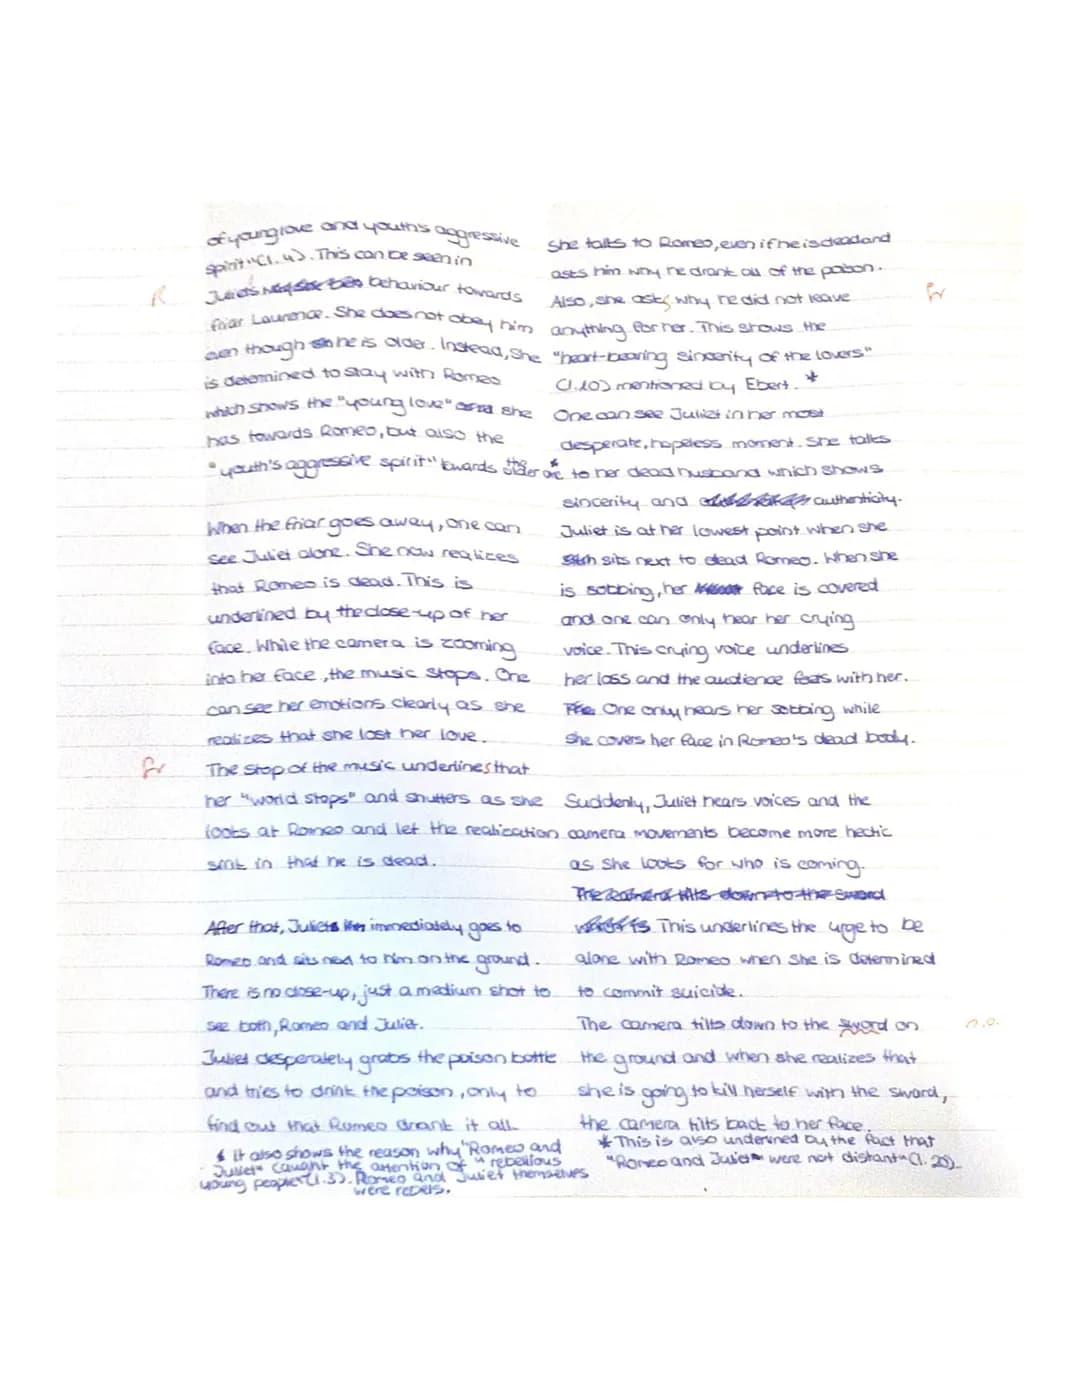 of young love and youth's aggressive
spirit" (l. 4). This can be seen in
Juliet's behaviour towards
friar Laurence. She does not obey him
even though he is older. Instead, she
is determined to stay with Romeo
which shows the "young love" she
has towards Romeo, but also the
"youth's aggressive spirit" towards the older one *
When the friar goes away, one can
see Juliet alone. She now realizes
that Romeo is dead. This is
underlined by the close-up of her
face. While the camera is zooming
into her face, the music stops. One
can see her emotions clearly as she
realizes that she lost her love.
fr
The stop of the music underlines that
her "world stops" and shutters as she
looks at Romeo and let the realization
sink in that he is dead.
After that, Juliet immediately goes to
Romeo and sits next to him on the ground.
There is no close-up, just a medium shot to
see both, Romeo and Juliet.
Juliet desperately grabs the poison bottle
and tries to drink the poison, only to
find out that Romeo drank it all.
* it also shows the reason why "Romeo and
Juliet" caught the attention of "rebellious
young people" (l. 3). Romeo and Juliet themselves
were rebels.
She talks to Romeo, even if he is dead and
asks him why he drank all of the poison.
Also, she asks why he did not leave
fr
anything for her. This shows the
"heart-bearing sincerity of the lovers"
(l. 10) mentioned by Ebert. *
One can see Juliet in her most
desperate, hopeless moment. She talks
to her dead husband which shows
sincerity and authenticity.
Juliet is at her lowest point when she
sits next to dead Romeo. When she
is sobbing, her face is covered
and one can only hear her crying
voice. This crying voice underlines
her loss and the audience feels with her.
One only hears her sobbing while
she covers her face in Romeo's dead body.
Suddenly, Juliet hears voices and the
camera movements become more hectic
as she looks for who is coming.
The camera tilts down to the sword
This underlines the urge to be
alone with Romeo when she is determined
to commit suicide.
The camera tilts down to the sword on
n.o.
the ground and when she realizes that
she is going to kill herself with the sword,
the camera tilts back to her face.
* This is also underlined by the fact that
"Romeo and Juliet were not distant" (l. 20).